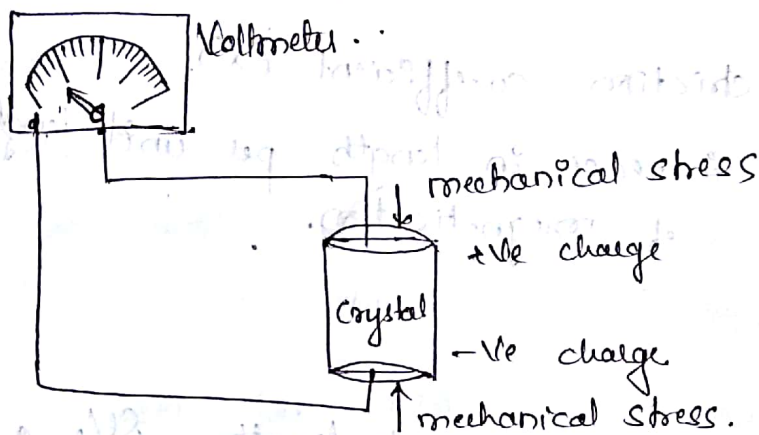 Voltmeter.
mechanical stress
+Ve charge
Crystal
-Ve charge
mechanical stress.